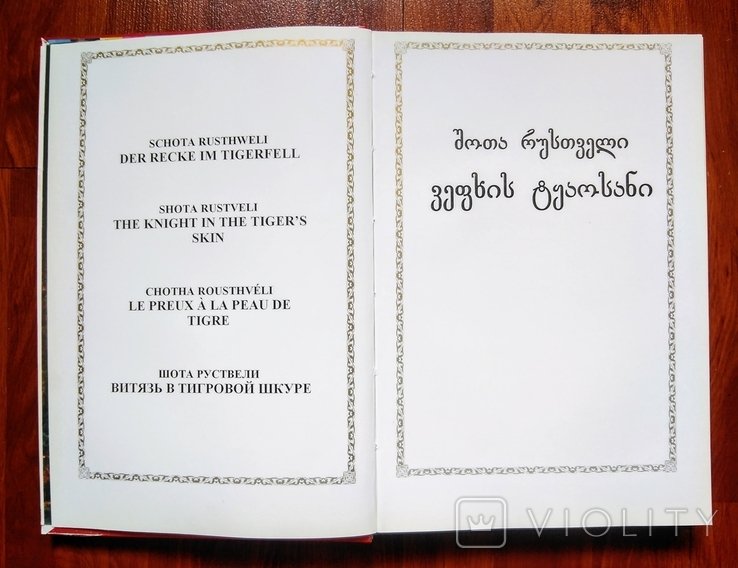 SCHOTA RUSTHWELI
DER RECKE IM TIGERFELL
SHOTA RUSTVELI
THE KNIGHT IN THE TIGER'S
SKIN
CHOTHA ROUSTHVÉLI
LE PREUX À LA PEAU DE
TIGRE
ШОТА РУСТВЕЛИ
ВИТЯЗЬ В ТИГРОВОЙ ШКУРЕ
შოთა რუსთველი
ვეფხის ტყაოსანი
VIOLITY